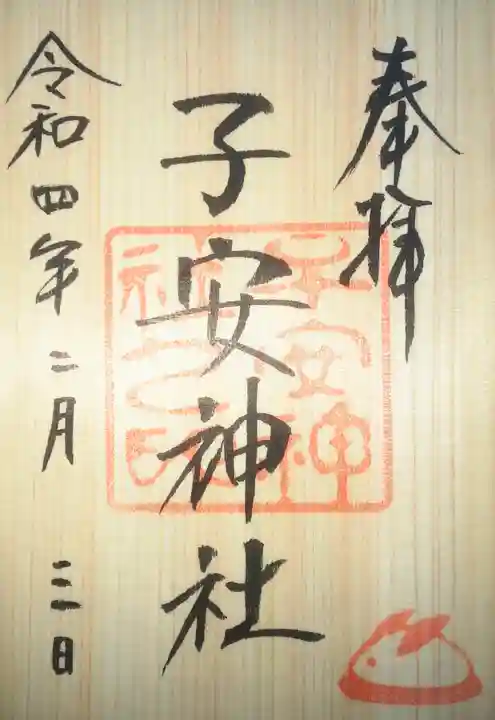 奉拝
子安神社
子安神
社之印
令和四年二月三日